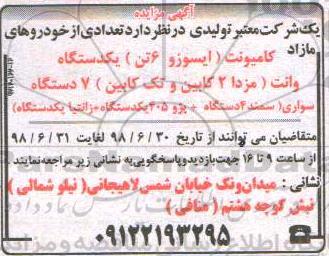 آگهی مزایده
یک شرکت معتبر تولیدی در نظر دارد تعدادی از خودروهای
مازاد
کامیونت ( ایسوزو ۶تن ) یکدستگاه
وانت ( مزدا ۲ کابین و تک کابین ) ۷ دستگاه
سواری( سمند۴دستگاه + پژو ۴۰۵یکدستگاه+زانتیا یکدستگاه)
متقاضیان می توانند از تاریخ ۹۸/۶/۳۰ لغایت ۹۸/۶/۳۱
از ساعت ۹ تا ۱۶ جهت بازدید و پاسخگویی به نشانی زیر مراجعه نمایند
نشانی : میدان ونک خیابان شمس لاهیجانی( نیلو شمالی )
نبش کوچه هشتم ( منافی )
۰۹۱۲۲۱۹۳۲۹۵